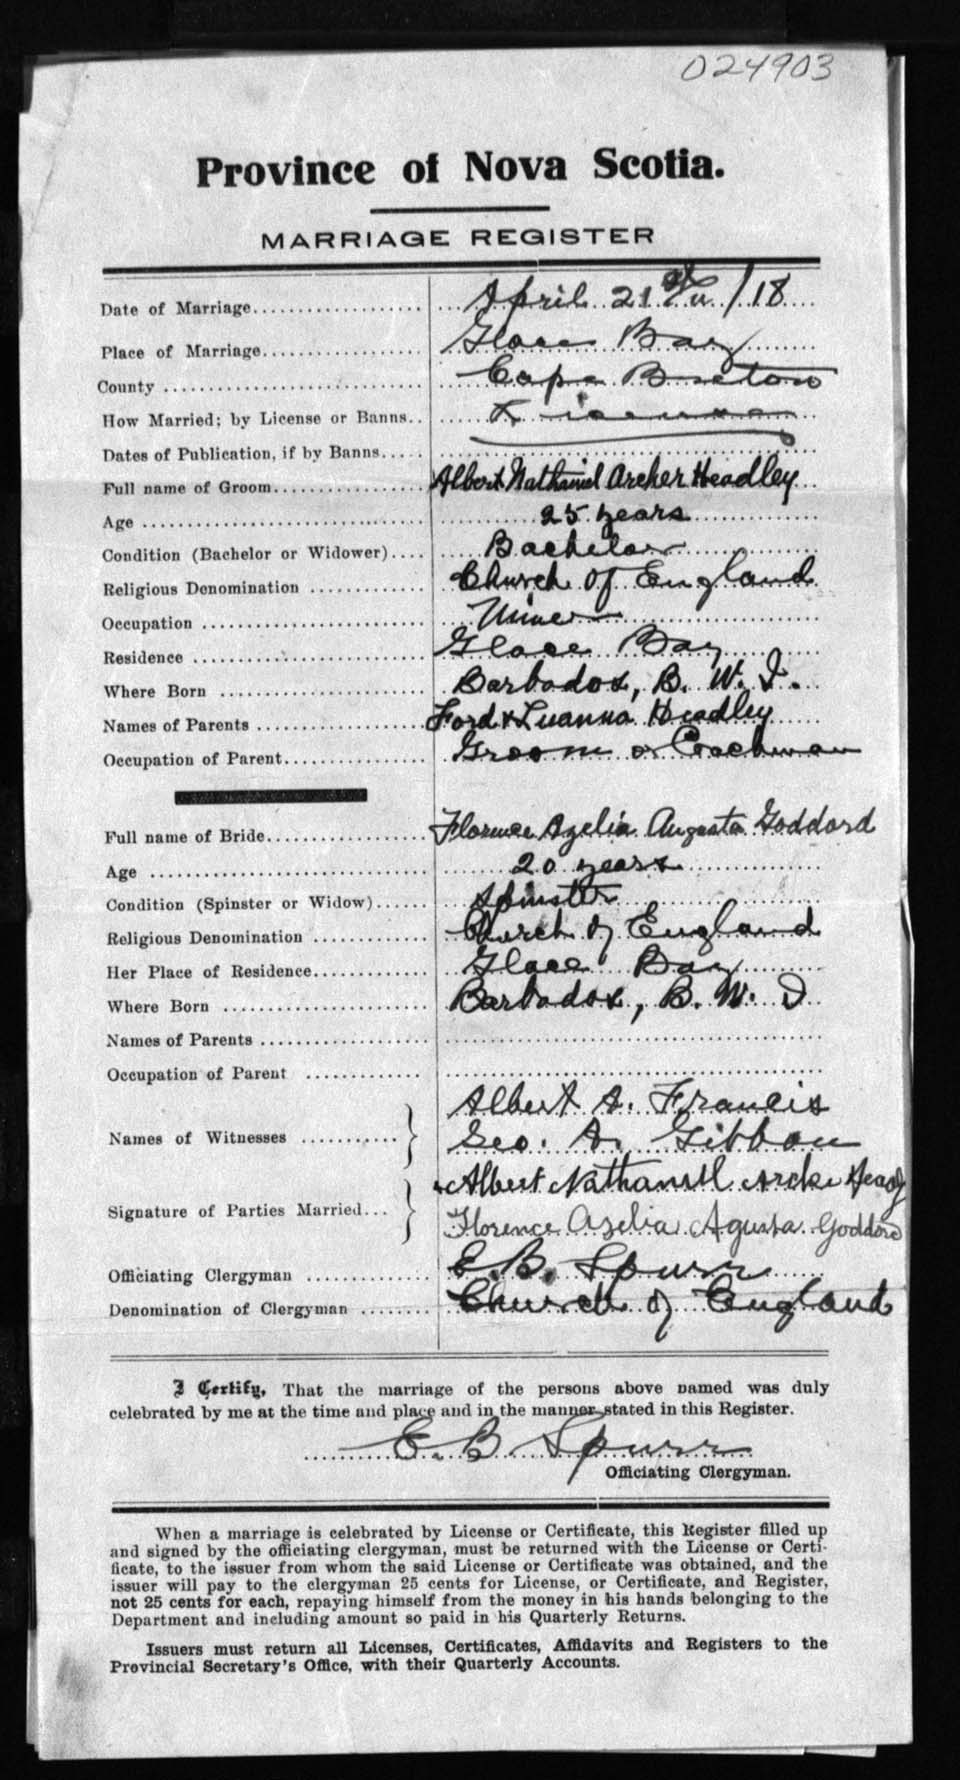 024903
Province of Nova Scotia.
MARRIAGE REGISTER
Date of Marriage April 21 /18
Place of Marriage Glace Bay
County Cape Breton
How Married; by License or Banns License
Dates of Publication, if by Banns
Full name of Groom Albert Nathaniel Archer Headley
Age 25 years
Condition (Bachelor or Widower) Bachelor
Religious Denomination Church of England
Occupation Miner
Residence Glace Bay
Where Born Barbados, B. W. I.
Names of Parents Ford & Luanna Headley
Occupation of Parent Groom or Coachman
Full name of Bride Florence Azelia Augusta Goddard
Age 20 years
Condition (Spinster or Widow) Spinster
Religious Denomination Church of England
Her Place of Residence Glace Bay
Where Born Barbados, B. W. I
Names of Parents
Occupation of Parent
Albert A. Francis
Names of Witnesses
Geo. A. Gibbon
Albert Nathaniel Archer
Signature of Parties Married
Florence Azelia Agusta Goddard
Officiating Clergyman E. B. Spurr
Denomination of Clergyman Church of England
I Certify, That the marriage of the persons above named was duly
celebrated by me at the time and place and in the manner stated in this Register.
E. B Spurr
Officiating Clergyman.
When a marriage is celebrated by License or Certificate, this Register filled up
and signed by the officiating clergyman, must be returned with the License or Certi-
ficate, to the issuer from whom the said License or Certificate was obtained, and the
issuer will pay to the clergyman 25 cents for License, or Certificate, and Register,
not 25 cents for each, repaying himself from the money in his hands belonging to the
Department and including amount so paid in his Quarterly Returns.
Issuers must return all Licenses, Certificates, Affidavits and Registers to the
Provincial Secretary's Office, with their Quarterly Accounts.